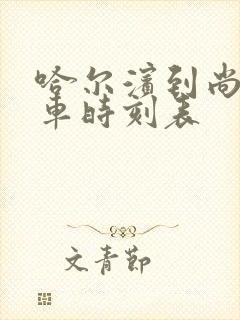 哈尔滨到尚
车时刻表
文青節